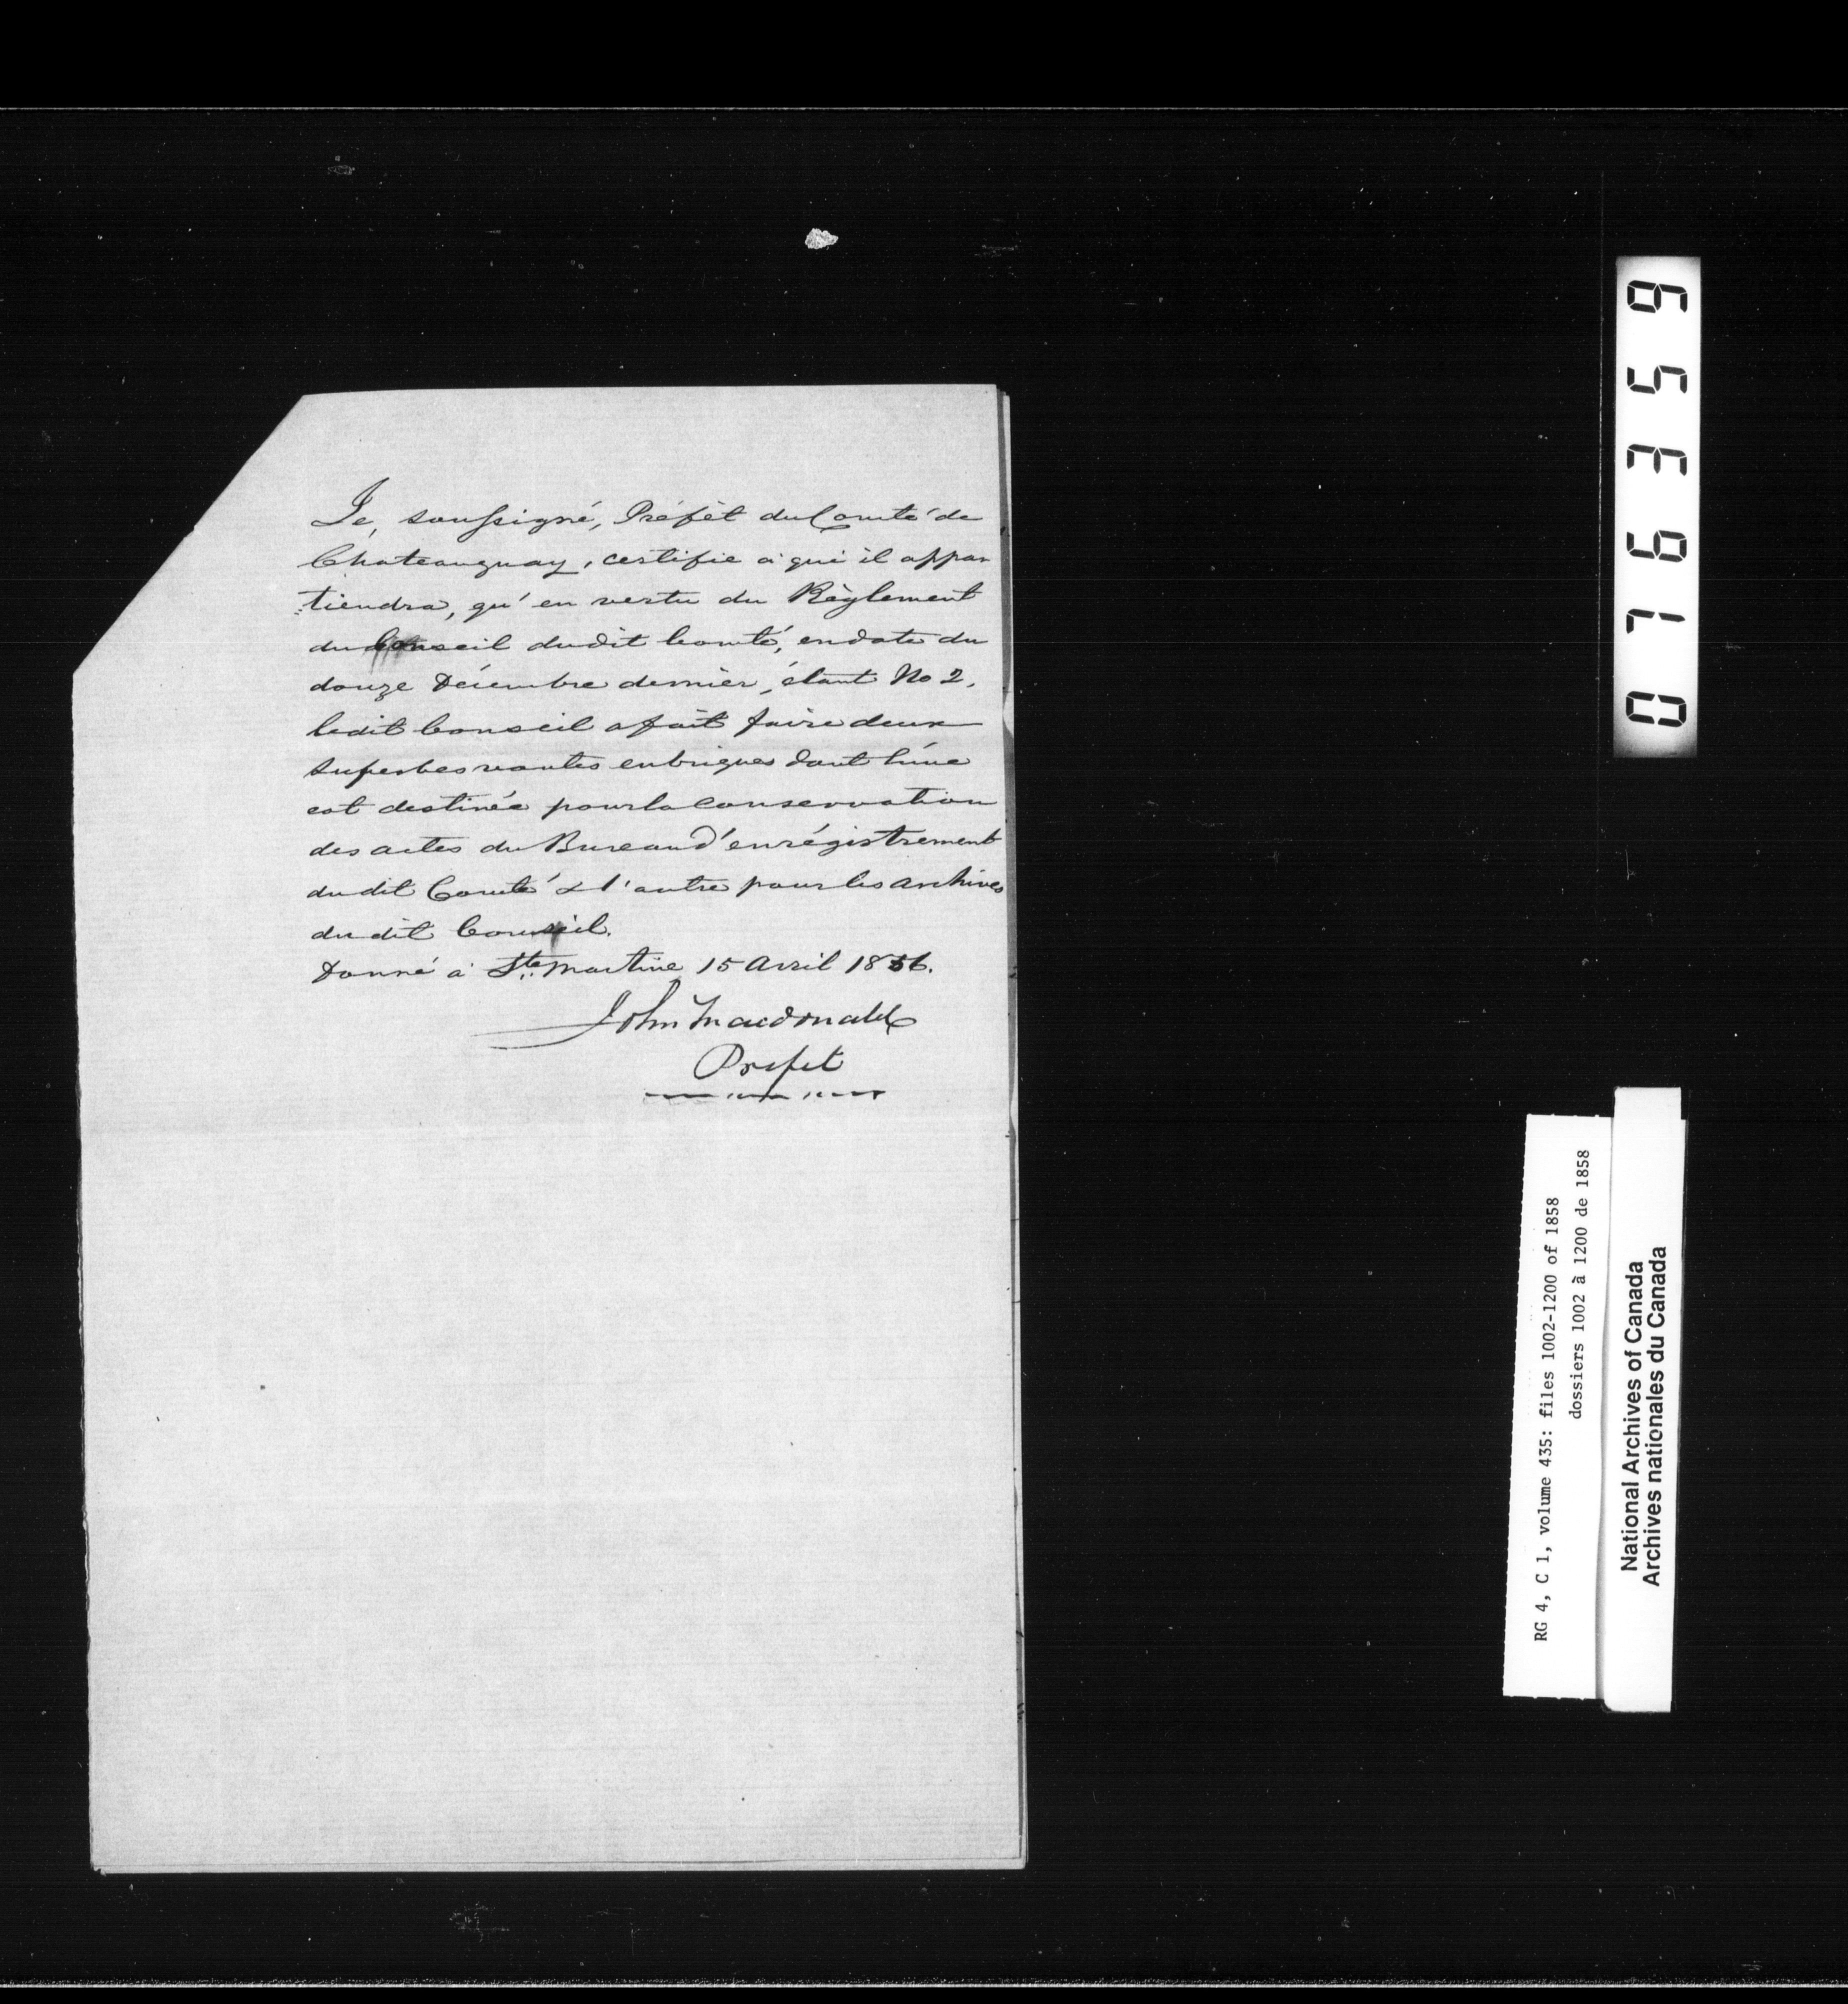 Je, soussigné, Préfèt du Comté de
Chateauguay, certifie à qui il appar
tiendra, qu'en vertu du Règlement
du Conseil dudit Comté, en date du
douze Décembre dernier, étant No 2,
ledit Conseil a fait faire deux
superbes voutes en briques dont l'une
est destinée pour la conservation
des actes du Bureau d'enrégistrement
du dit Comté & l'autre pour les archives
du dit Conseil.
Donné à Ste Martine 15 Avril 1856.
John Macdonald
Prefet
076359
RG 4, C 1, volume 435: files 1002-1200 of 1858
dossiers 1002 à 1200 de 1858
National Archives of Canada
Archives nationales du Canada